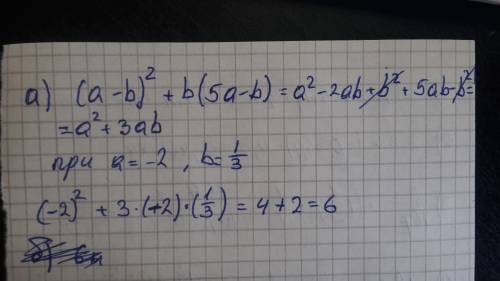 а) (a-b)² + b(5a-b) = a² - 2ab + b² + 5ab - b² =
= a² + 3ab
при a = -2, b = 1/3
(-2)² + 3·(+2)·(1/3) = 4 + 2 = 6